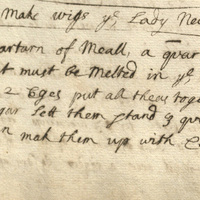 Make wigs yͤ Lady Ne
artarn of Meall, a qvar
t must be Melted in yͤ
2 Eges put all theas toge
gar lett them stand ȝ qv
n mak them up with C